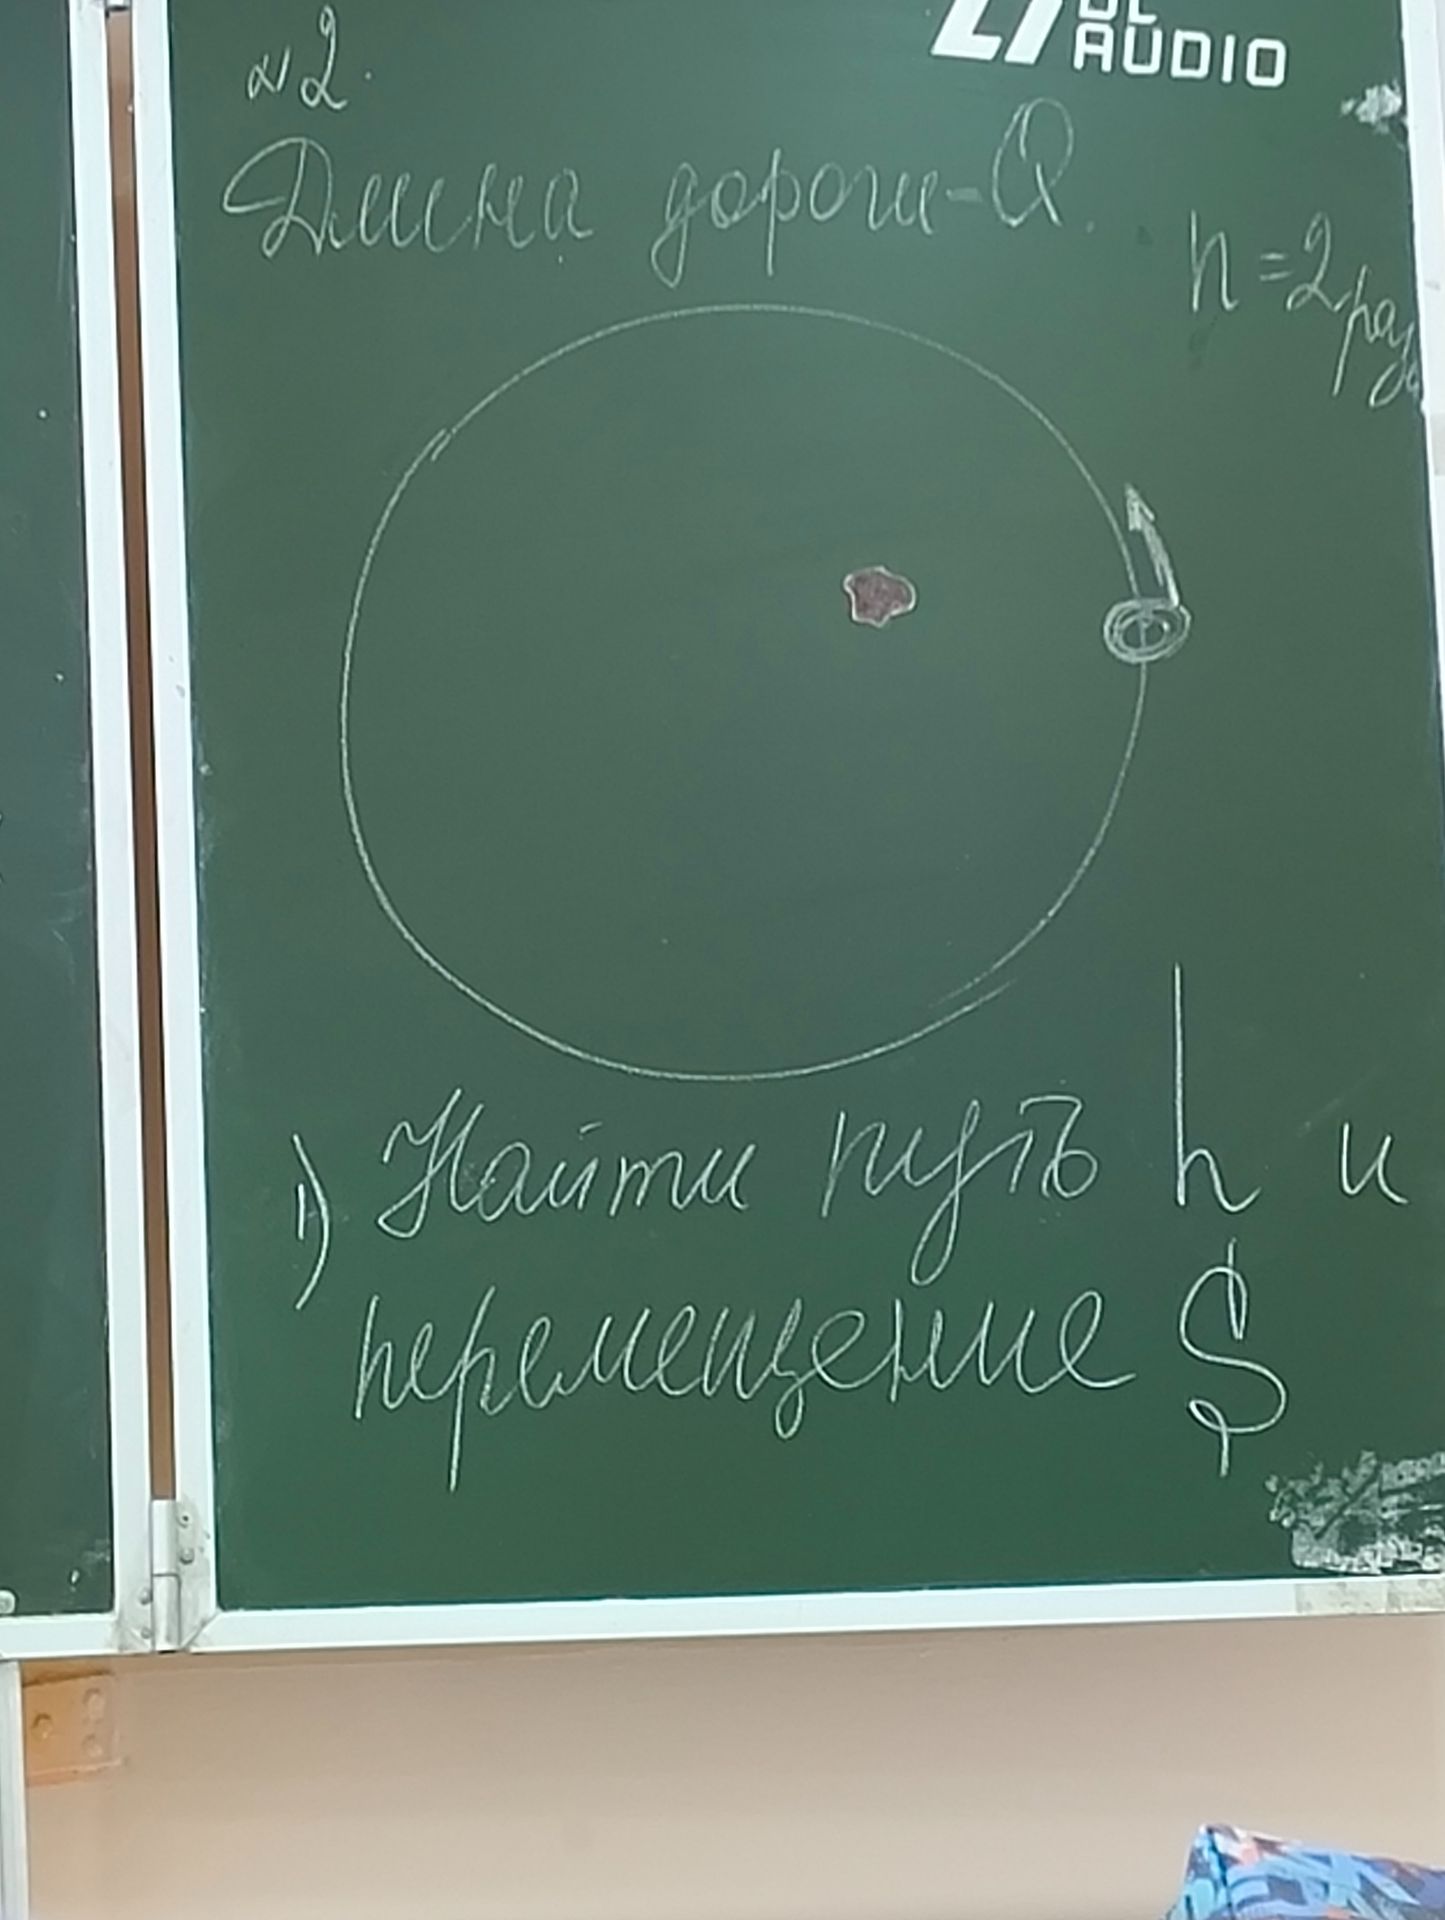 AUDIO
№2.
Длина дороги - Q.
n = 2 раза
1) Найти путь h и
перемещение S